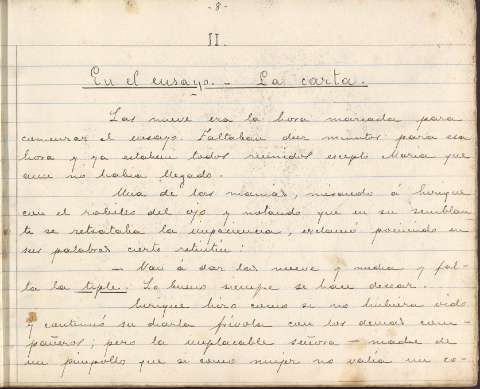 - 8 -
II.
En el ensayo. - La carta.
Las nueve era la hora marcada para
comenzar el ensayo. Faltaban diez minutos para esa
hora y ya estaban todos reunidos escepto María que
aun no habia llegado.
Una de las mamás, mirando á Enrique
con el rabillo del ojo y notando que en su semblan
te se retrataba la impaciencia, exclamó poniendo en
sus palabras cierto retintín:
- Van á dar las nueve y media y fal-
ta la tiple. Lo bueno siempre se hace desear.
Enrique hizo como si no hubiera oido
y continuó su charla frívola con los demas com-
pañeros; pero la implacable señora - madre de
un pimpollo que si como mujer no valía un co-